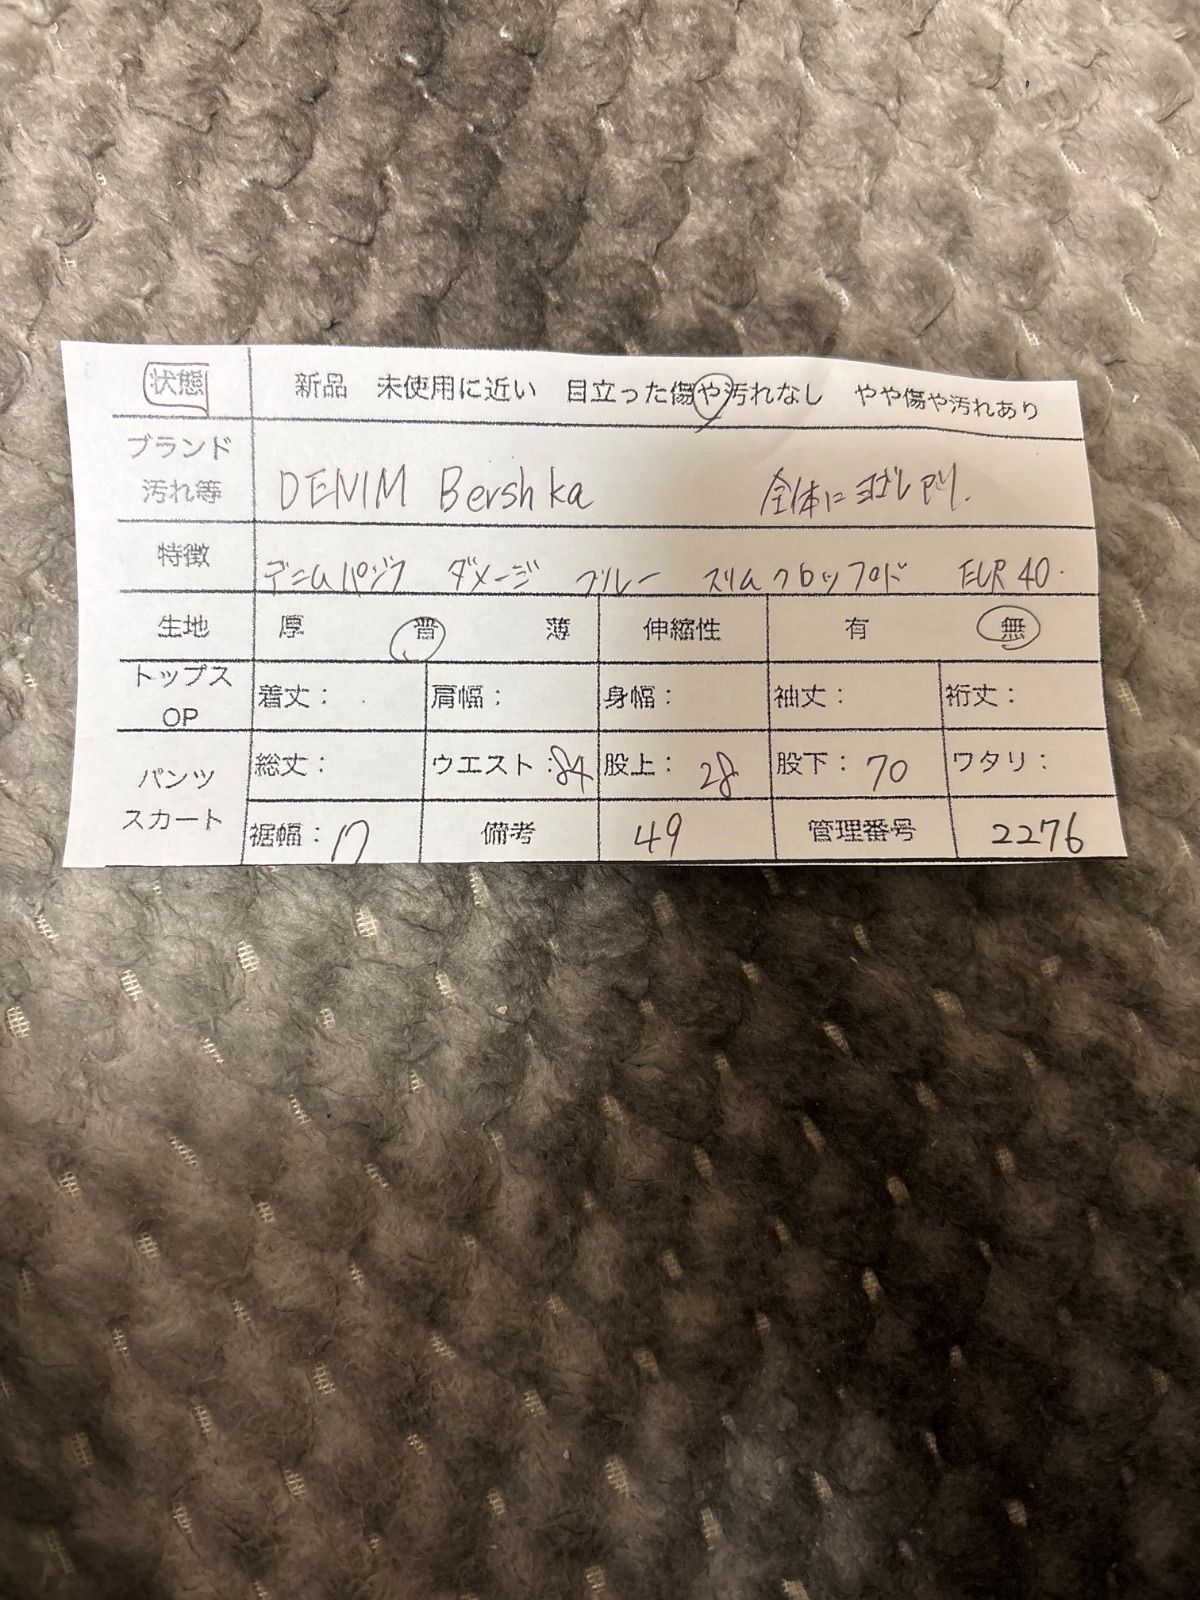 状態 新品 未使用に近い 目立った傷や汚れなし やや傷や汚れあり
ブランド
汚れ等 DENIM Bershka 全体にヨゴレアリ.
特徴 デニムパンツ ダメージ ブルー スリム クロップド EUR 40.
生地 厚 普 薄 伸縮性 有 無
トップス
OP 着丈: 肩幅: 身幅: 袖丈: 裄丈:
パンツ
スカート 総丈: ウエスト:84 股上: 28 股下: 70 ワタリ:
裾幅: 17 備考 49 管理番号 2276